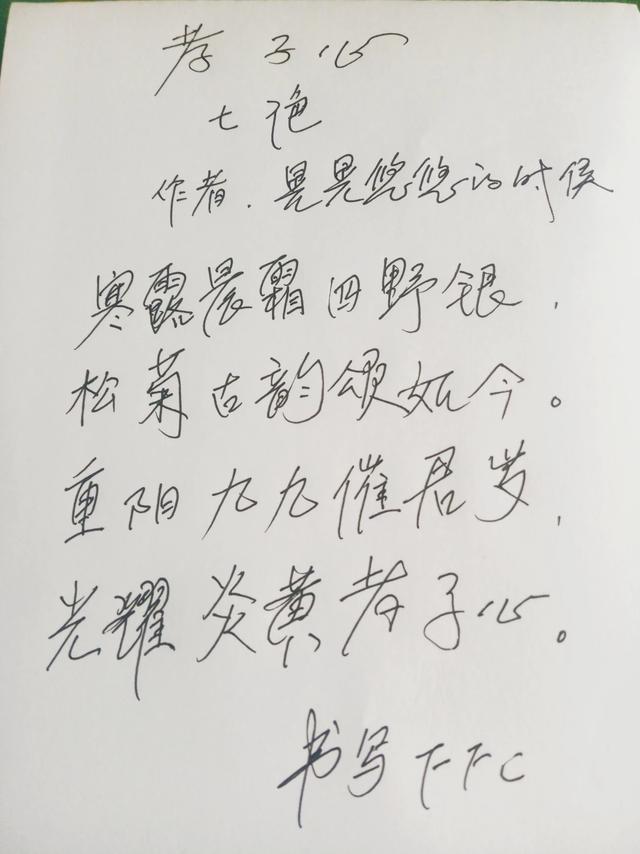 孝子心
七绝
作者.晃晃悠悠的时候
寒露晨霜四野银,
松菊古韵颂如今。
重阳九九催君岁,
光耀炎黄孝子心。
书写